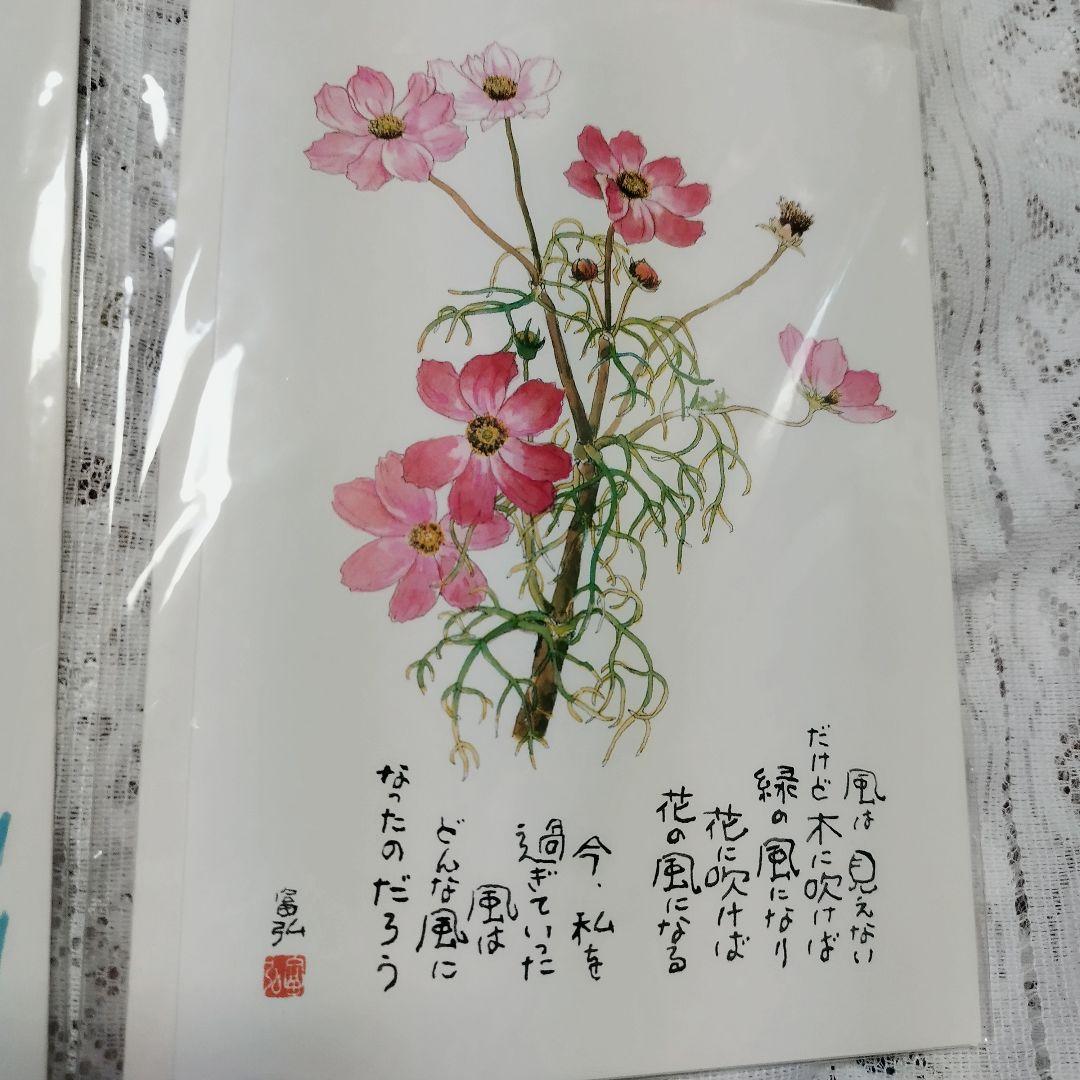 風は見えない
だけど木に吹けば
緑の風になり
花に吹けば
花の風になる
今、私を
過ぎていった
風は
どんな風に
なったのだろう
富弘